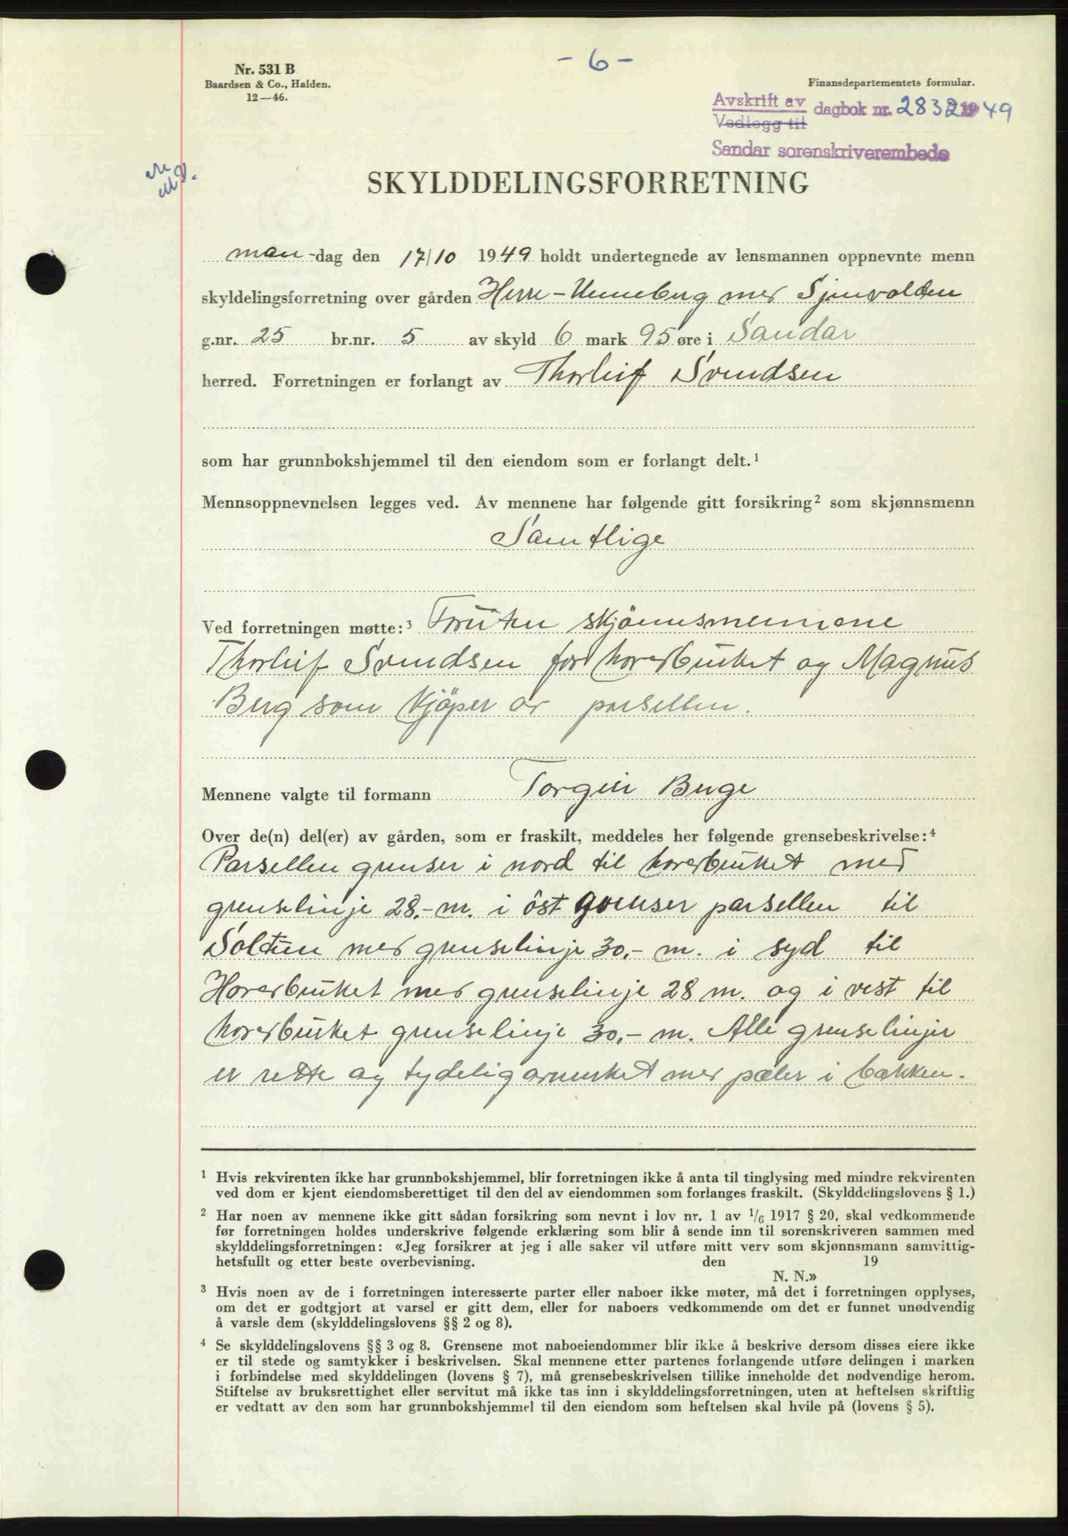 Nr. 531 B
Baardsen & Co., Halden.
12—46.
- 6 -
Finansdepartementets formular.
Avskrift av
Vedlegg til
dagbok nr. 2832 1949
Sandar sorenskriverembede
SKYLDDELINGSFORRETNING
man-dag den 17/10 1949 holdt undertegnede av lensmannen oppnevnte menn
skyldelingsforretning over gården Herre-Unneberg med Sjuevolden
g.nr. 25 br.nr. 5 av skyld 6 mark 95 øre i Sandar
herred. Forretningen er forlangt av Thorleif Svendsen
som har grunnbokshjemmel til den eiendom som er forlangt delt.¹
Mennsoppnevnelsen legges ved. Av mennene har følgende gitt forsikring² som skjønnsmenn
Samtlige
Ved forretningen møtte:³ Foruten skjönnsmennene
Thorleif Svendsen for hovedbruket og Magnus
Berg som kjöper av parsellen.
Mennene valgte til formann Torgeir Berge
Over de(n) del(er) av gården, som er fraskilt, meddeles her følgende grensebeskrivelse:⁴
Parsellen grenser i nord til hovedbruket med
grenselinje 28,- m. i öst grenser parsellen til
Soltun med grenselinje 30,- m. i syd til
Hovedbruket med grenselinje 28 m. og i vest til
hovedbruket grenselinje 30,- m. Alle grenselinjer
er rette og tydelig avmerket med pæler i bakken.
¹ Hvis rekvirenten ikke har grunnbokshjemmel, blir forretningen ikke å anta til tinglysing med mindre rekvirenten
ved dom er kjent eiendomsberettiget til den del av eiendommen som forlanges fraskilt. (Skylddelingslovens § 1.)
² Har noen av mennene ikke gitt sådan forsikring som nevnt i lov nr. 1 av 1/6 1917 § 20, skal vedkommende
før forretningen holdes underskrive følgende erklæring som blir å sende inn til sorenskriveren sammen med
skylddelingsforretningen: «Jeg forsikrer at jeg i alle saker vil utføre mitt verv som skjønnsmann samvittig-
hetsfullt og etter beste overbevisning. den 19
N. N.»
³ Hvis noen av de i forretningen interesserte parter eller naboer ikke møter, må det i forretningen opplyses,
om det er godtgjort at varsel er gitt dem, eller for naboers vedkommende om det er funnet unødvendig
å varsle dem (skylddelingslovens §§ 2 og 8).
⁴ Se skylddelingslovens §§ 3 og 8. Grensene mot naboeiendommer blir ikke å beskrive dersom disses eiere ikke
er til stede og samtykker i beskrivelsen. Skal mennene etter partenes forlangende utføre delingen i marken
i forbindelse med skylddelingen (lovens § 7), må grensebeskrivelsen tillike inneholde det nødvendige herom.
Stiftelse av bruksrettighet eller servitut må ikke tas inn i skylddelingsforretningen, uten at heftelsen skriftlig
er vedtatt av den som har grunnbokshjemmel til den eiendom som heftelsen skal hvile på (lovens § 5).